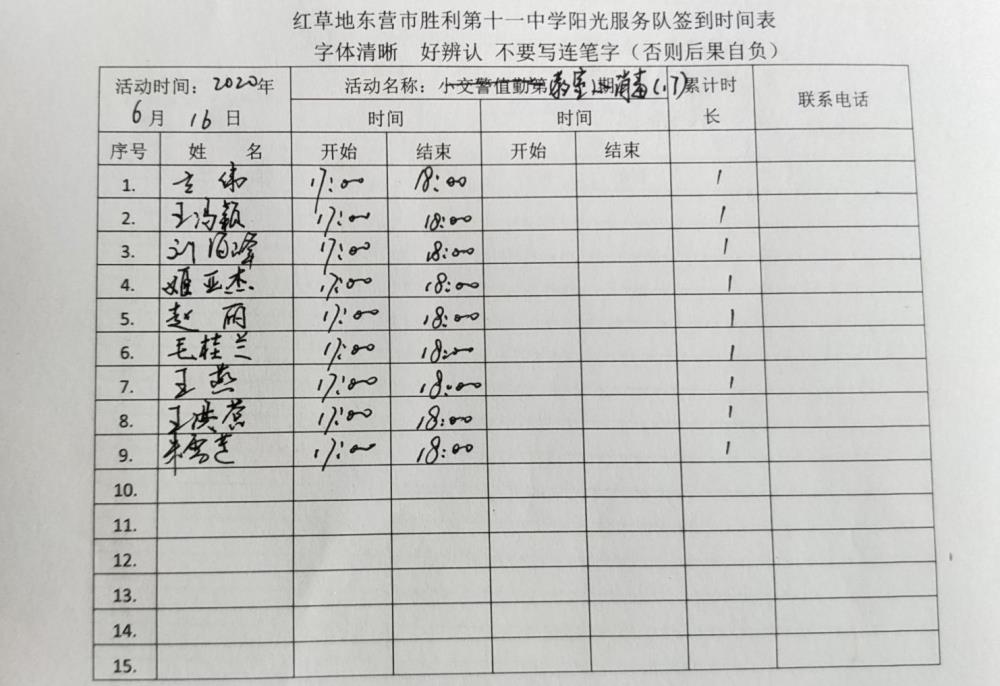 红草地东营市胜利第十一中学阳光服务队签到时间表
字体清晰 好辨认 不要写连笔字（否则后果自负）
活动时间：2020年 活动名称：小交警值勤第 期 教室 消毒(1.7) 累计时长 联系电话
6月16日 时间 时间
序号 姓 名 开始 结束 开始 结束
1. 伟 17:00 18:00 1
2. 王冯颖 17:00 18:00 1
3. 刘 峰 17:00 18:00 1
4. 姬亚杰 17:00 18:00 1
5. 赵 丽 17:00 18:00 1
6. 毛桂兰 17:00 18:00 1
7. 王 燕 17:00 18:00 1
8. 王洪 17:00 18:00 1
9. 朱雪莲 17:00 18:00 1
10.
11.
12.
13.
14.
15.